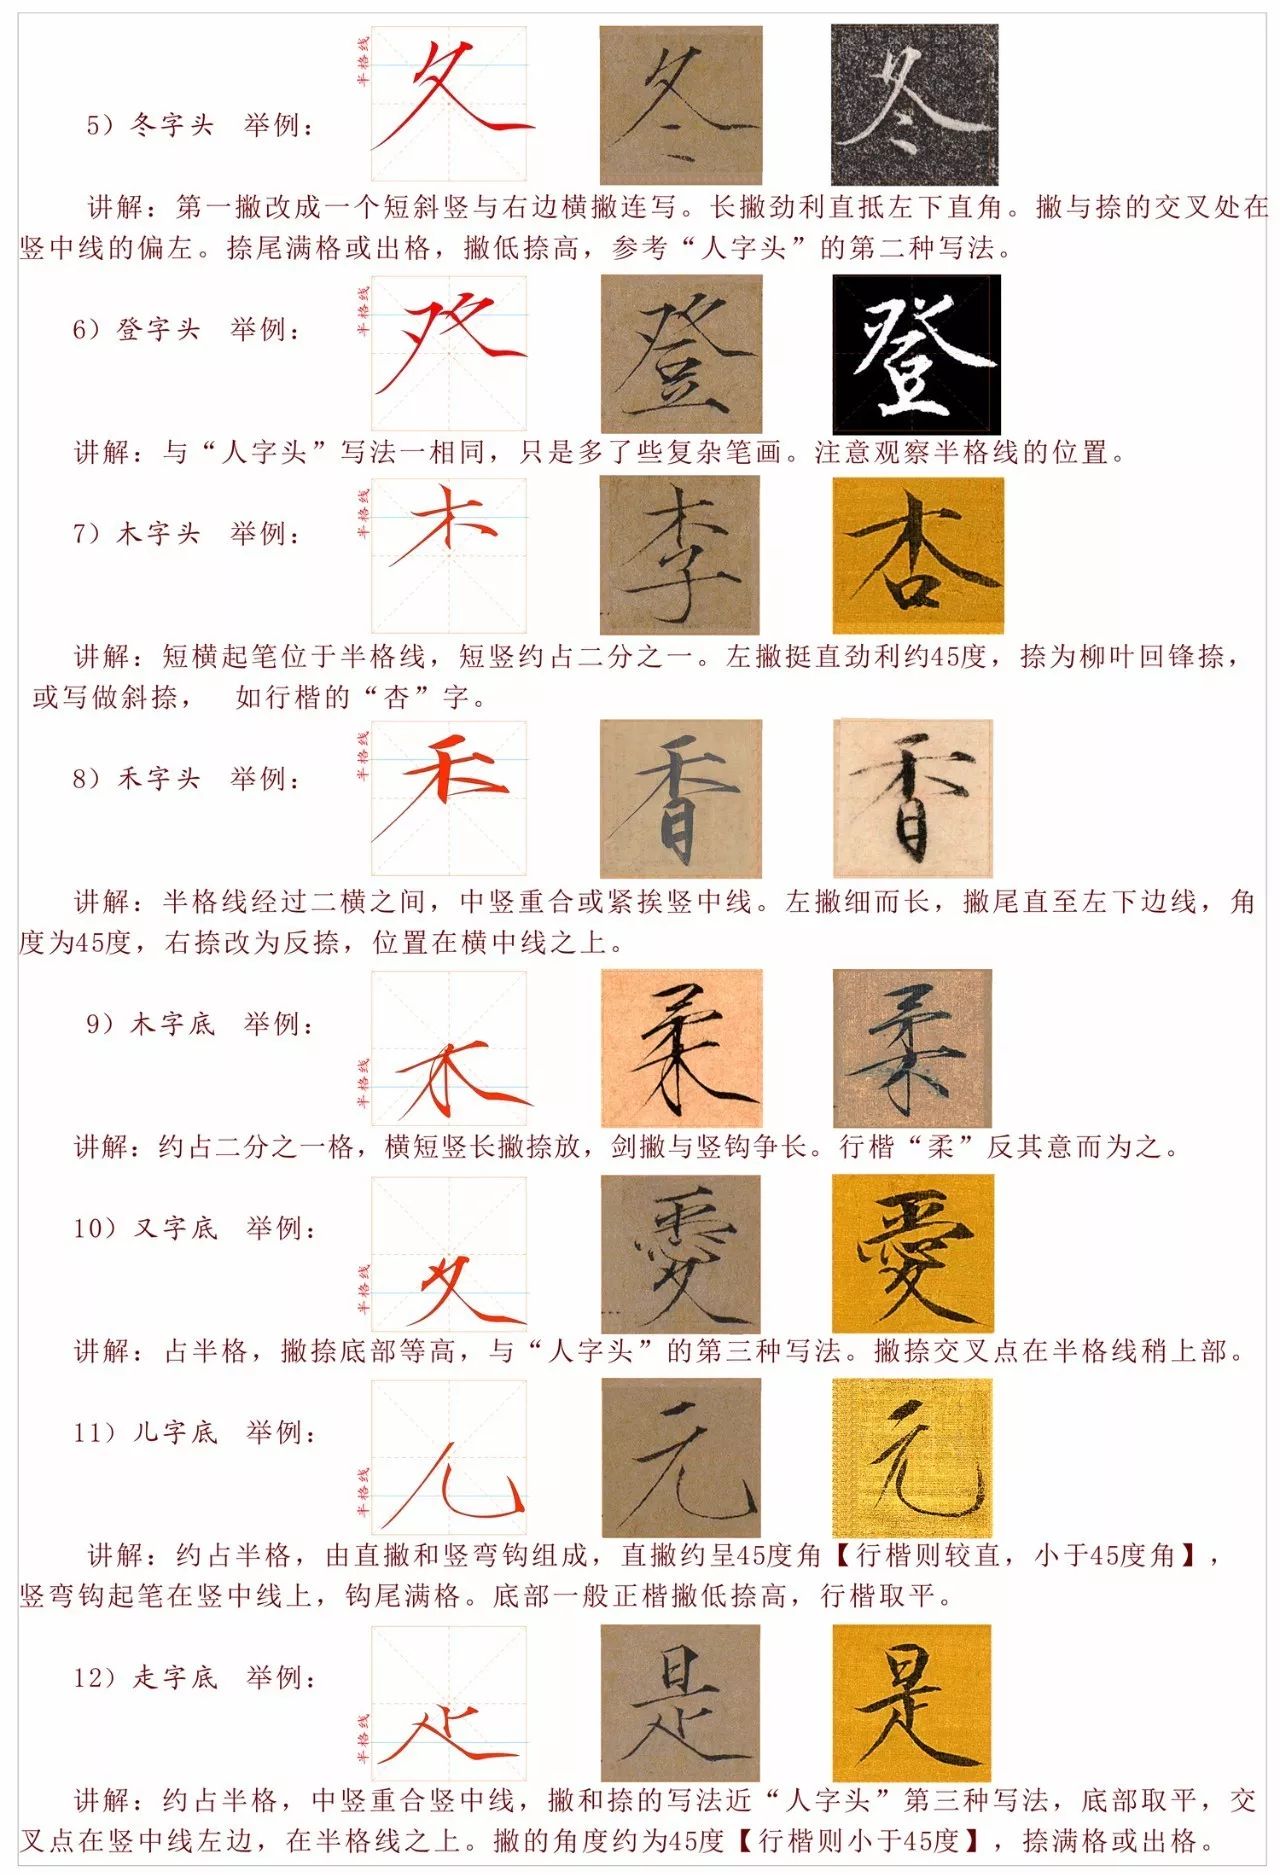 半格线
冬
冬
5）冬字头 举例：
讲解：第一撇改成一个短斜竖与右边横撇连写。长撇劲利直抵左下直角。撇与捺的交叉处在
竖中线的偏左。捺尾满格或出格，撇低捺高，参考“人字头”的第二种写法。
半格线
登
登
6）登字头 举例：
讲解：与“人字头”写法一相同，只是多了些复杂笔画。注意观察半格线的位置。
半格线
木
李
杏
7）木字头 举例：
讲解：短横起笔位于半格线，短竖约占二分之一。左撇挺直劲利约45度，捺为柳叶回锋捺，
或写做斜捺， 如行楷的“杏”字。
半格线
禾
香
香
8）禾字头 举例：
讲解：半格线经过二横之间，中竖重合或紧挨竖中线。左撇细而长，撇尾直至左下边线，角
度为45度，右捺改为反捺，位置在横中线之上。
9）木字底 举例：
半格线
木
柔
柔
讲解：约占二分之一格，横短竖长撇捺放，剑撇与竖钩争长。行楷“柔”反其意而为之。
10）又字底 举例：
半格线
愛
愛
讲解：占半格，撇捺底部等高，与“人字头”的第三种写法。撇捺交叉点在半格线稍上部。
11）儿字底 举例：
半格线
儿
元
元
讲解：约占半格，由直撇和竖弯钩组成，直撇约呈45度角【行楷则较直，小于45度角】，
竖弯钩起笔在竖中线上，钩尾满格。底部一般正楷撇低捺高，行楷取平。
12）走字底 举例：
半格线
是
是
讲解：约占半格，中竖重合竖中线，撇和捺的写法近“人字头”第三种写法，底部取平，交
叉点在竖中线左边，在半格线之上。撇的角度约为45度【行楷则小于45度】，捺满格或出格。